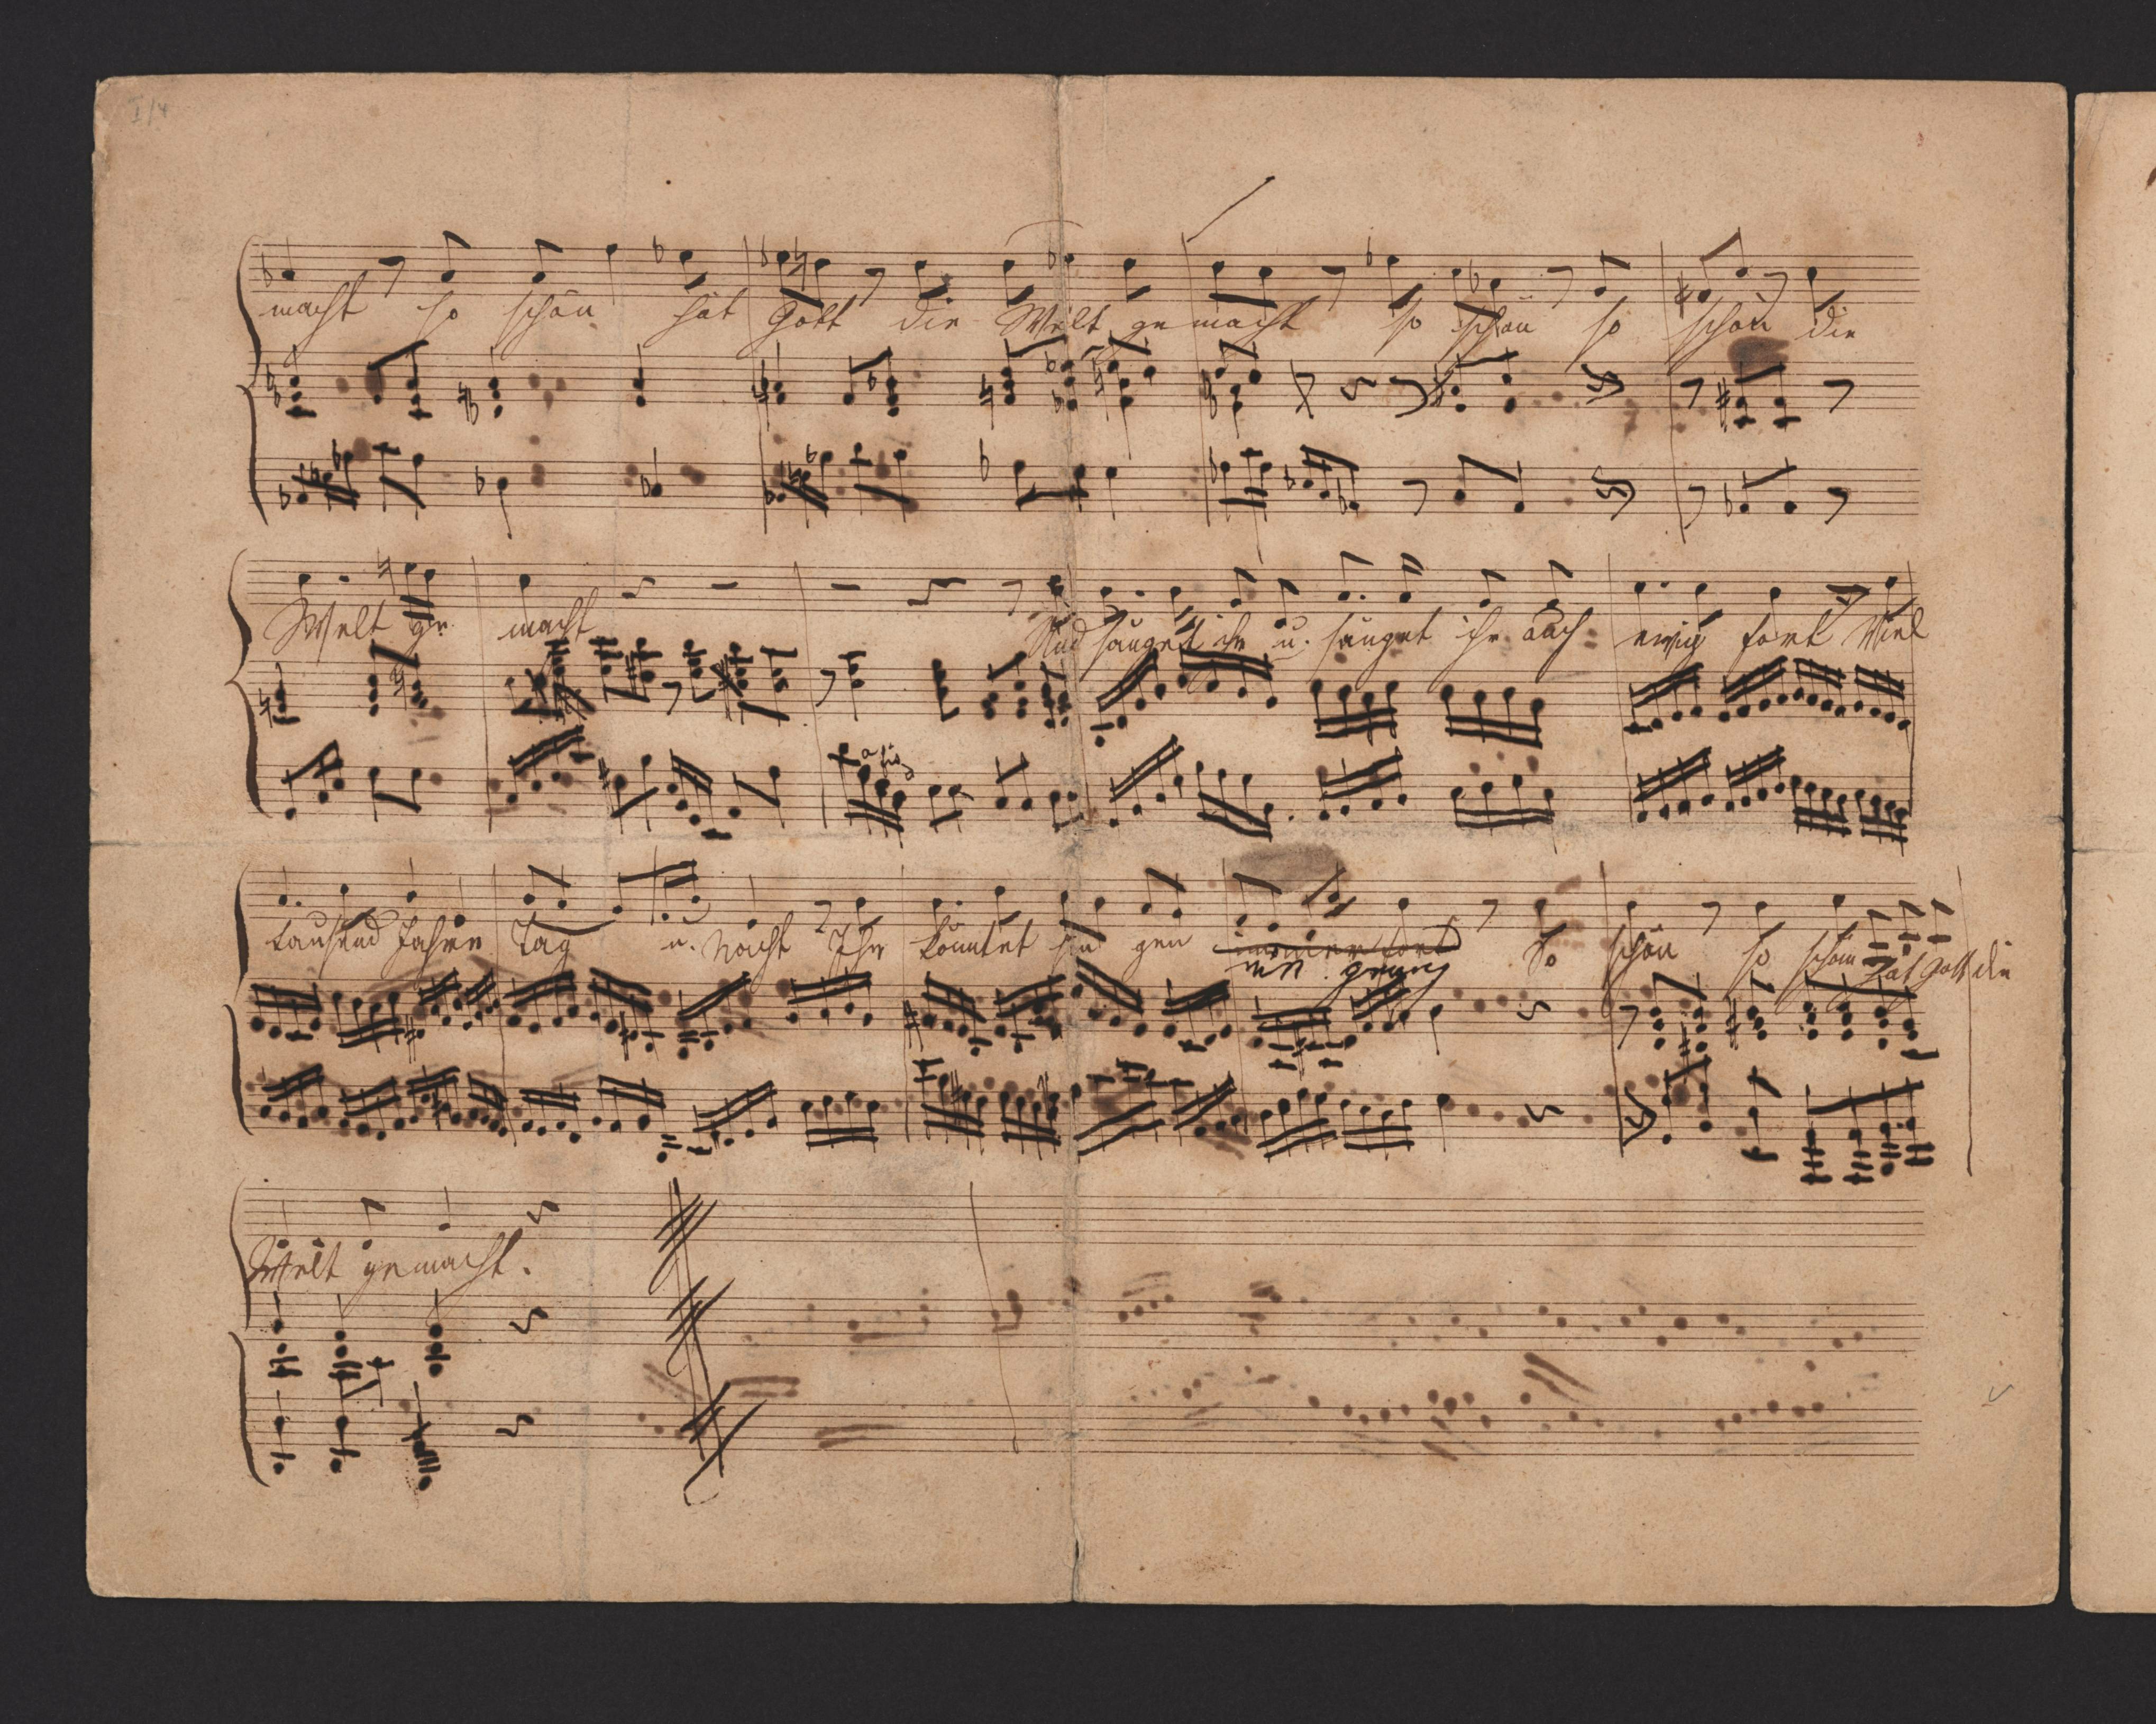 I/4
macht so schön hat Gott die Welt gemacht so schön so schön die
Welt ge macht Und sänget ihr u. sänget ihr auch ewig fort Viel
a fis
tausend Jahre Tag u. Nacht Ihr könntet sin gen immerfort So schön so schön hat Gott die
genug
Welt gemacht.